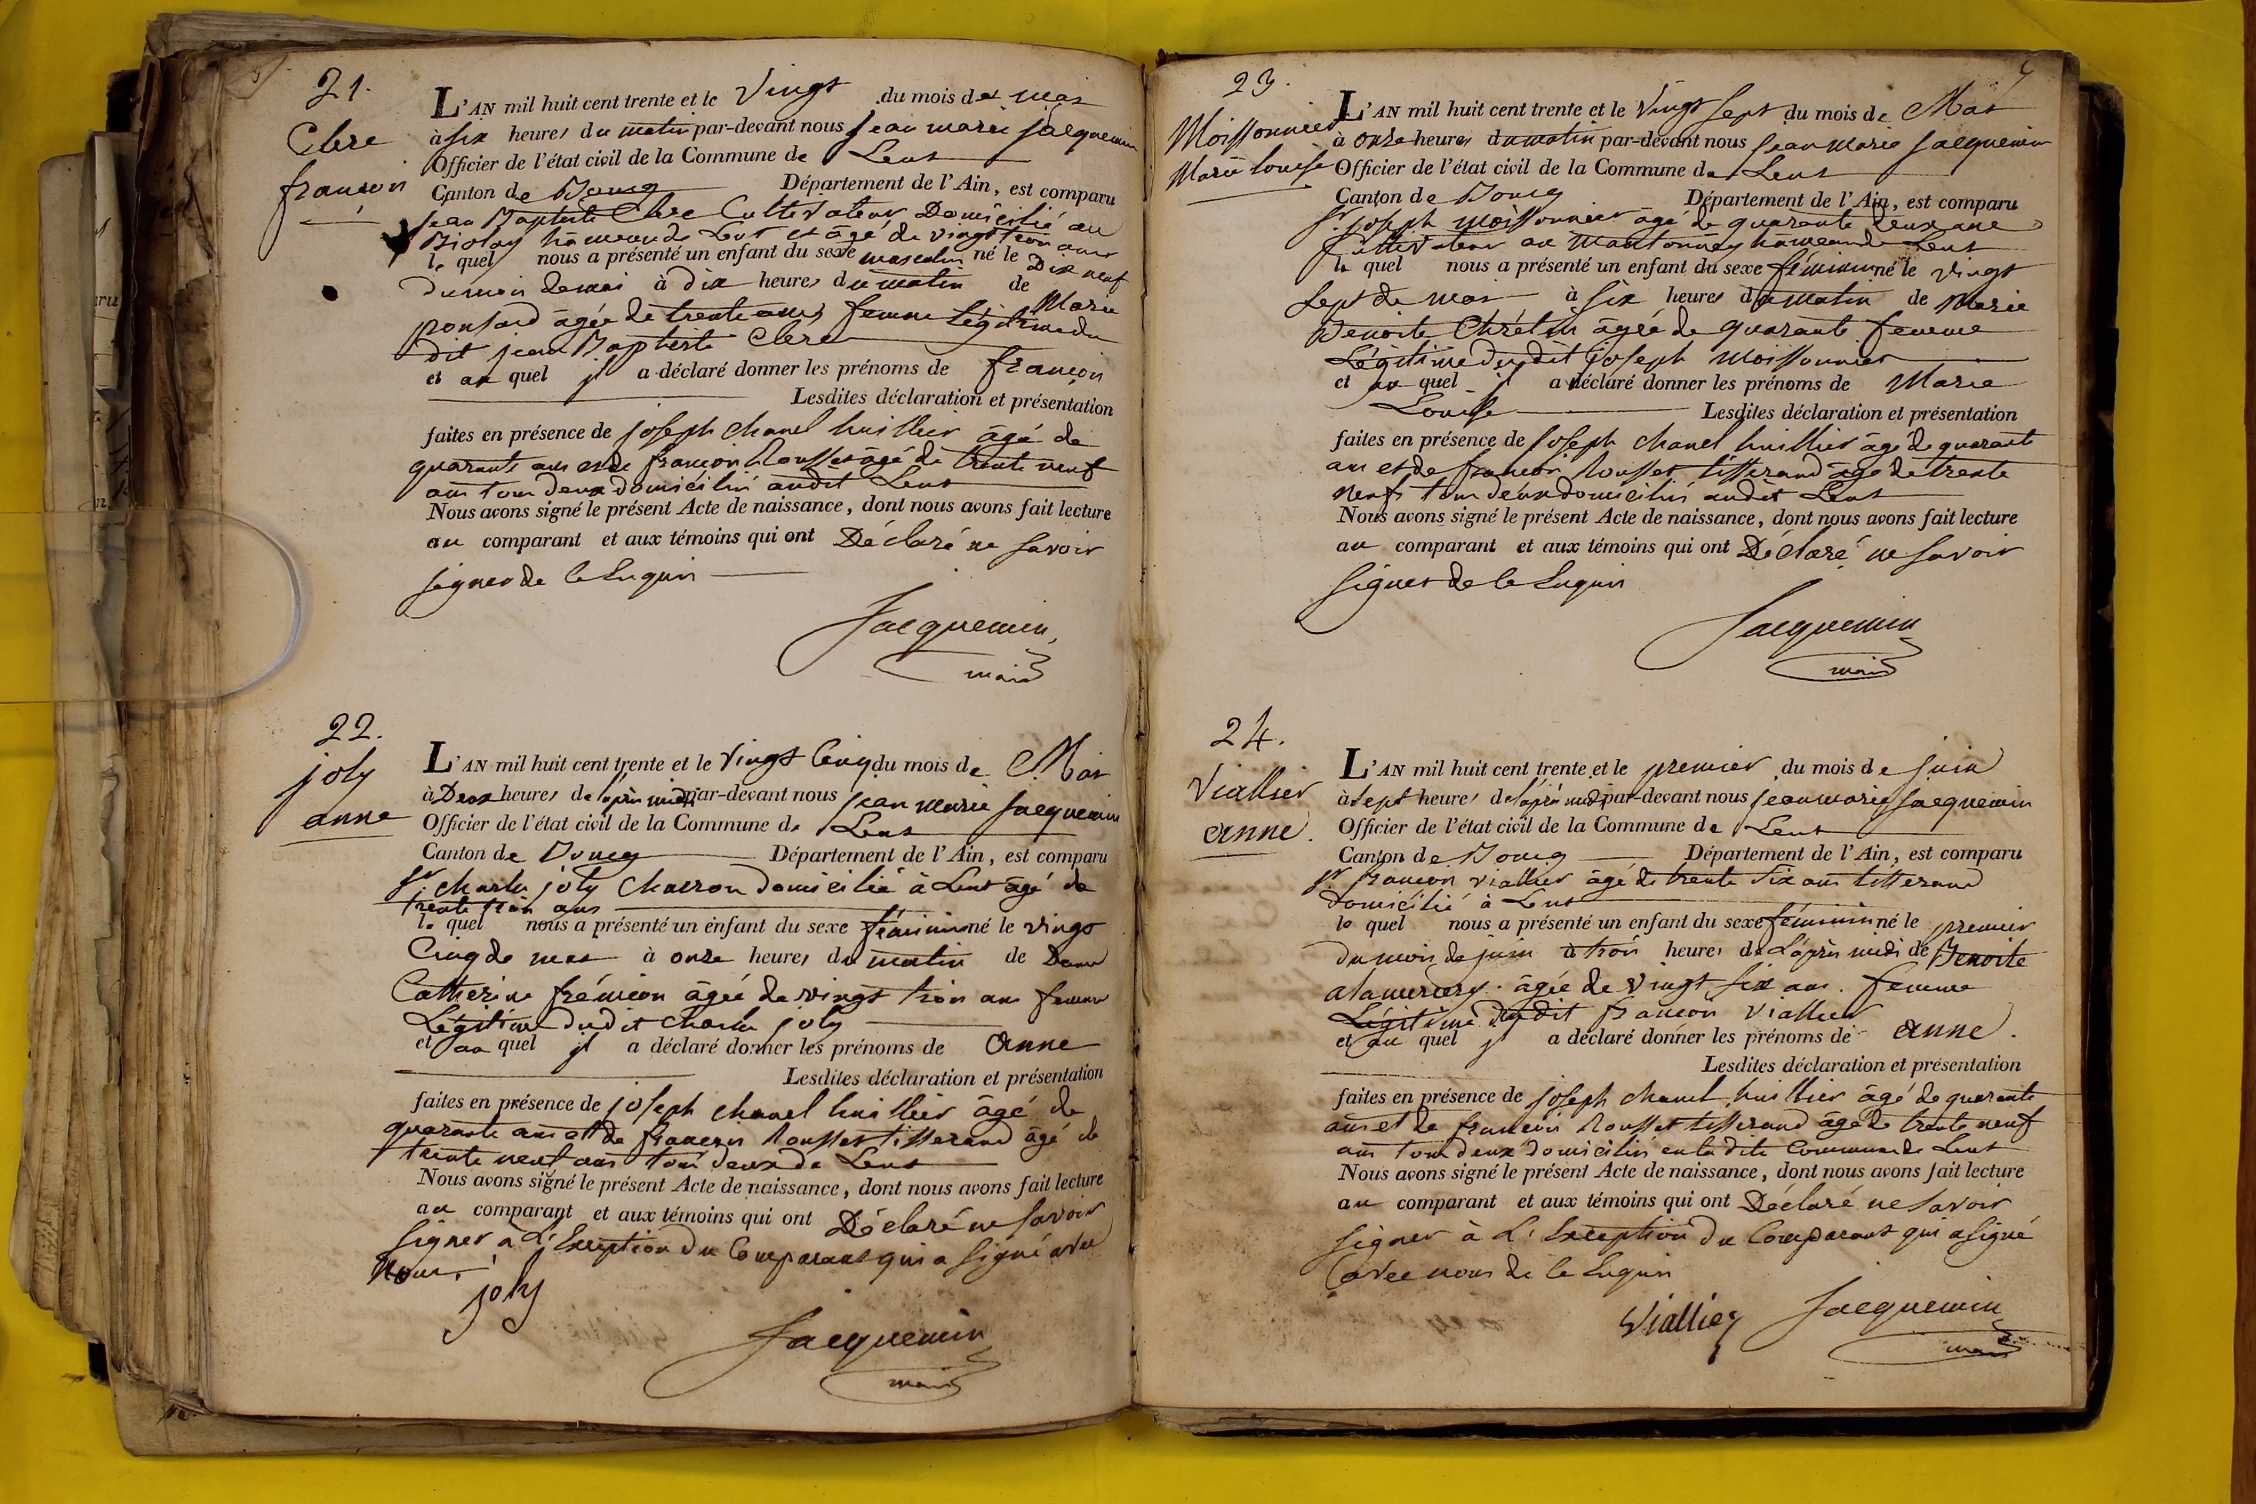 21.
Clere
françois
L'AN mil huit cent trente et le Vingt du mois de mai
à six heures du matin par-devant nous jean marie jacquemin
Officier de l'état civil de la Commune de Lent
Canton de Bourg Département de l'Ain, est comparu
jean Baptiste Clere Cultivateur Domicilié au
Biolay hameau de Lent et âgé de vingt trois ans
le quel nous a présenté un enfant du sexe masculin né le Dix neuf
du mois de mai à dix heures du matin de Marie
ponsard âgée de trente ans femme Légitime du
dit jean Baptiste Clere
et au quel jl a déclaré donner les prénoms de françois
Lesdites déclaration et présentation
faites en présence de joseph chanel huillier âgé de
quarante ans et de françois Rousset âgé de trente neuf
ans tous deux domiciliés audit Lent
Nous avons signé le présent Acte de naissance, dont nous avons fait lecture
au comparant et aux témoins qui ont Déclaré ne savoir
signer de ce Enquis
Jacquemin
maire
22.
joly
anne
L'AN mil huit cent trente et le vingt Cinq du mois de Mai
à Deux heures de l'après midi par-devant nous jean marie jacquemin
Officier de l'état civil de la Commune de Lent
Canton de Bourg Département de l'Ain, est comparu
sr. charles joly Charron domicilié à Lent âgé de
trente trois ans
le quel nous a présenté un enfant du sexe féminin né le vingt
Cinq de mai à onze heures du matin de Dame
Catherine frémion âgée de vingt trois ans femme
Légitime dudit charles joly
et au quel jl a déclaré donner les prénoms de anne
Lesdites déclaration et présentation
faites en présence de joseph chanel huillier âgé de
quarante ans et de françois Rousset tisserand âgé de
trente neuf ans tous deux de Lent
Nous avons signé le présent Acte de naissance, dont nous avons fait lecture
au comparant et aux témoins qui ont Déclaré ne savoir
signer à L'Exception du Comparant qui a signé avec
nous.
joly
Jacquemin
maire
23.
Moissonnier
Marie louise
L'AN mil huit cent trente et le Vingt sept du mois de Mai
à onze heures du matin par-devant nous jean marie jacquemin
Officier de l'état civil de la Commune de Lent
Canton de Bourg Département de l'Ain, est comparu
sr. joseph moissonnier âgé de quarante deux ans
Cultivateur au Mantonnay hameau de Lent
le quel nous a présenté un enfant du sexe féminin né le vingt
sept de mai à six heures du matin de Marie
Benoite Chrétin âgée de quarante femme
Légitime dudit joseph Moissonnier
et au quel jl a déclaré donner les prénoms de Marie
Louise Lesdites déclaration et présentation
faites en présence de joseph chanel huillier âgé de quarante
ans et de françois Rousset tisserand âgé de trente
neufs tous deux domiciliés audit Lent
Nous avons signé le présent Acte de naissance, dont nous avons fait lecture
au comparant et aux témoins qui ont Déclaré ne savoir
signer de ce Enquis
Jacquemin
maire
24.
Viallier
anne.
L'AN mil huit cent trente et le premier du mois de juin
à sept heures de l'après midi par-devant nous jean marie jacquemin
Officier de l'état civil de la Commune de Lent
Canton de Bourg Département de l'Ain, est comparu
sr. françois viallier âgé de trente six ans tisserand
domicilié à Lent
le quel nous a présenté un enfant du sexe féminin né le premier
du mois de juin à trois heures de L'après midi de Benoite
alamercery. âgée de vingt six ans. femme
Légitime dudit françois viallier
et au quel jl a déclaré donner les prénoms de anne.
Lesdites déclaration et présentation
faites en présence de joseph chanel huillier âgé de quarante
ans et de françois Rousset tisserand âgé de trente neuf
ans tous deux domiciliés en ladite Commune de Lent
Nous avons signé le présent Acte de naissance, dont nous avons fait lecture
au comparant et aux témoins qui ont Déclaré ne savoir
signer à L'Exception du Comparant qui a signé
avec nous de ce Enquis
Viallier Jacquemin
maire